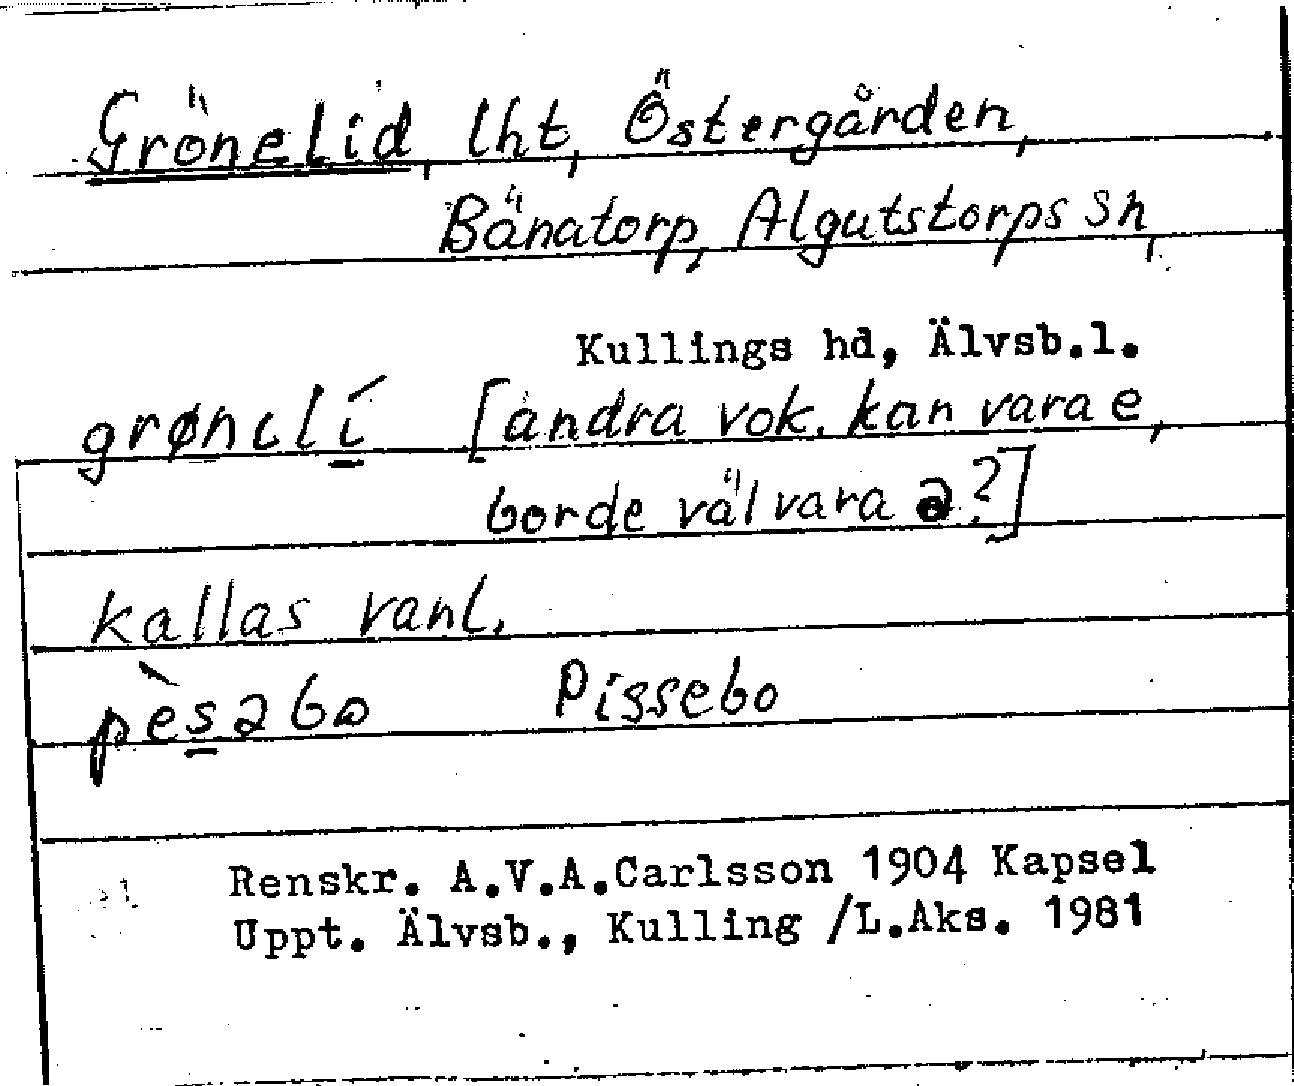 Grönelid, lht, Östergården,
Bänatorp, Algutstorps sn,
Kullings hd, Älvsb.l.
grønelí [andra vok. kan vara e,
borde väl vara ə?]
kallas vanl.
pèsəbo Pissebo
Renskr. A.V.A.Carlsson 1904 Kapsel
Uppt. Älvsb., Kulling /L.Aks. 1981